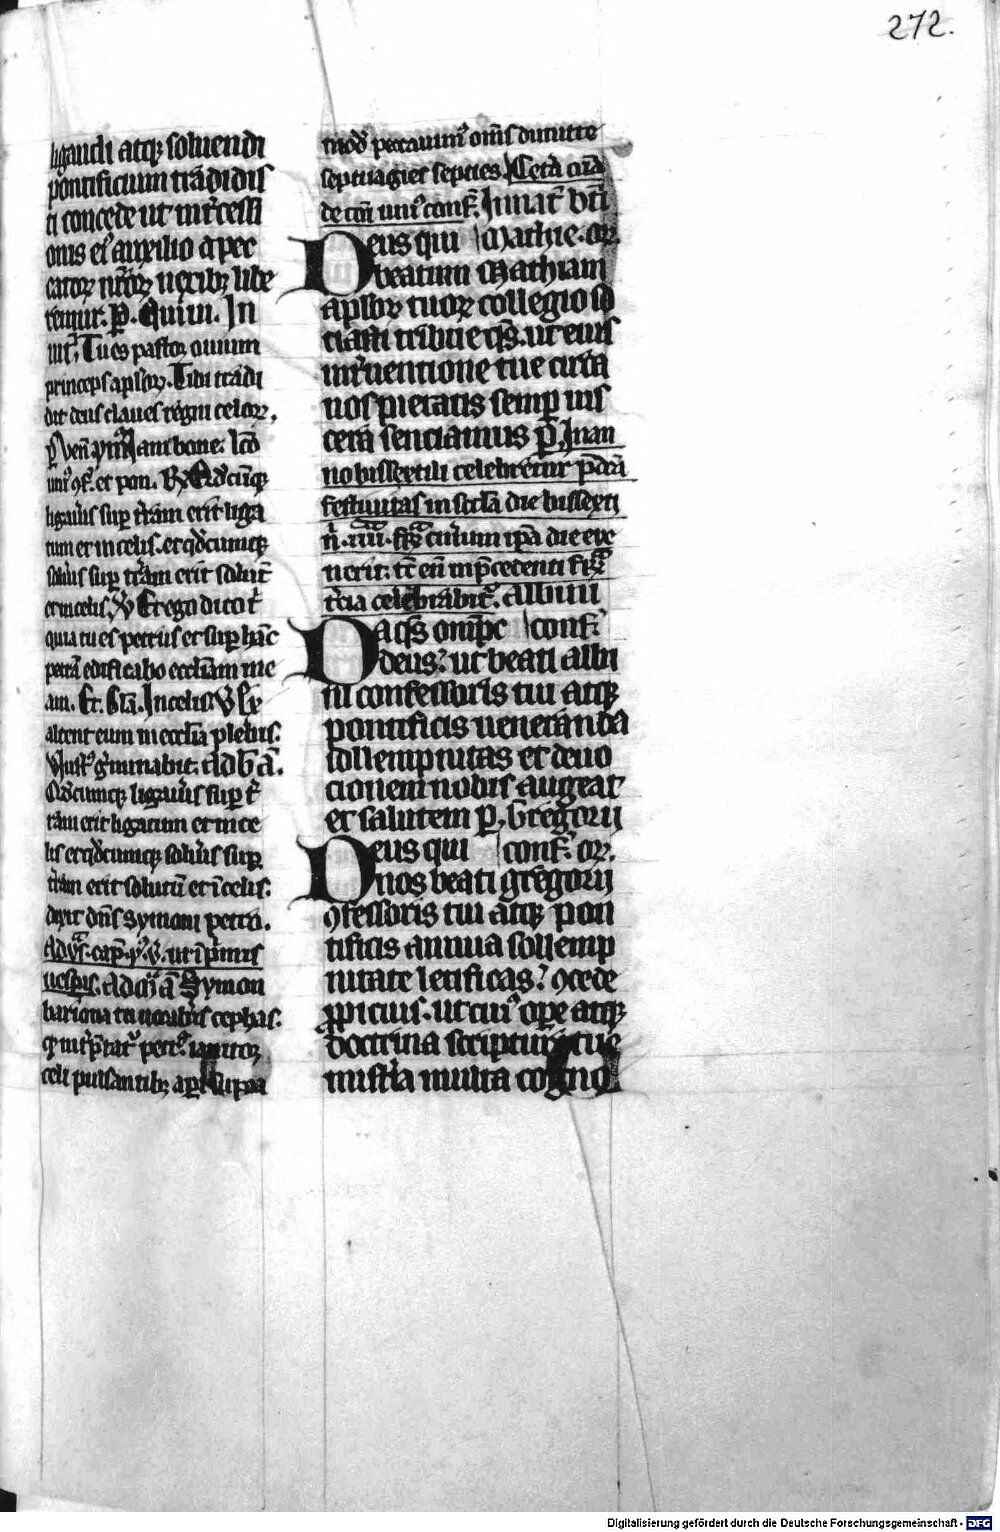 272.
ligandi atq; soluendi
pontificium tradidis
ti concede ut int̄cessi
onis ei9 auxilio a pec
catoꝝ nr̄oꝝ nexib; libe
remur. P. Qui ui. In
Tu es pastor ouium
princeps apl̄oꝝ. Tibi tradi
dit deus claues regni celoꝝ.
uni9 ꝯf̄. et pon. R Qd̄cūq;
ligaūis sup tr̄am erit liga
tum et in celis. et qd̄cumq;
solūis sup tr̄am erit solut̄
et in celis. V Et ego dico t̄
quia tu es petrus et sup hāc
petrā edificabo eccl̄iam me
am. Et. Gl̄a. In celis V Ex
altent eum in eccl̄ia plebis.
V Iust9 gͥminabit. Ad b̄ a.
Qd̄cumq; ligaūis sup t̄
ram erit ligatum et in ce
lis et qd̄cumq; solūis sup
tr̄am erit solutū et ī celis.
dixit dn̄s symoni petro.
ut ī pͥmis
uesp̄is. Ad m̄ a Symon
bariona tu uocab̄is cephas.
qͦ int̄p̄tat̄ petr9 ianitoꝝ
celi pulsantib; apͥ
peccauim9 om̄s dimitte
septuagies septies. Cetā
de cōi uni9 conf̄. In nat̄ bt̄i
Deus qui Mathie. or̄.
beatum Mathiam
apl̄oꝝ tuoꝝ collegio so
ciasti tribue qs̄. ut eius
int̄uentione tue circa
nos pietatis semp uis
cera senciamus p̄. In an
no bissextili celebretur p̄dc̄a
festiuitas in sc̄d̄a die bissexti
cuīum ip̄a die eue
nerit: tc̄ eni in p̄cedenti
t̄cia celebrabit̄. Albini
Da qs̄ omp̄c conf̄.
deus: ut beati albi
ni confessoris tui atq;
pontificis ueneranda
sollempnitas et deuo
cionem nobis augeat
et salutem p̄. Gregorii
Deus qui conf̄. or̄.
nos beati gregorii
ꝯfessoris tui atq; pon
tificis annua sollemp
nitate letificas: ꝯcede
ꝓpicius. ut cui9 ope atq;
doctrina scripture tue
mist̄ia multa cogno
Digitalisierung gefördert durch die Deutsche Forschungsgemeinschaft - DFG